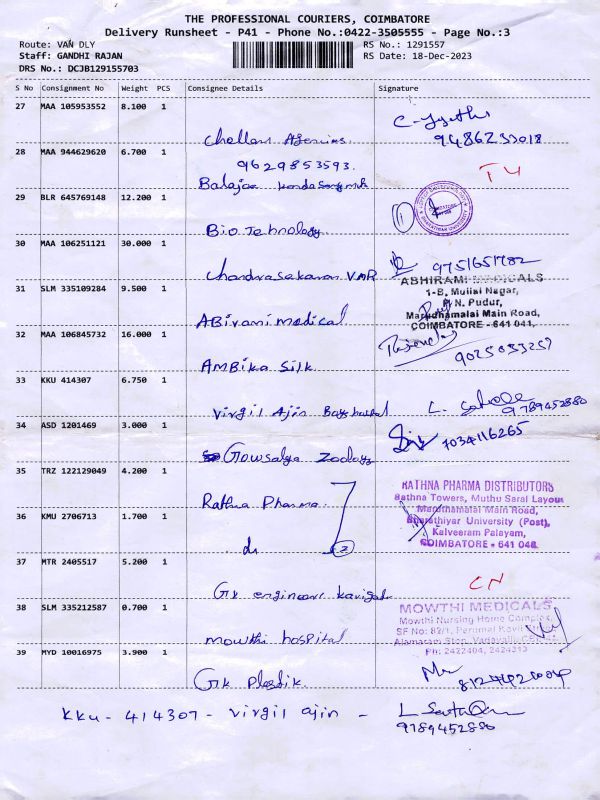 THE PROFESSIONAL COURIERS, COIMBATORE
Delivery Runsheet - P41 - Phone No.:0422-3505555 - Page No.:3
Route: VAN DLY
RS No.: 1291557
Staff: GANDHI RAJAN
RS Date: 18-Dec-2023
DRS No.: DCJB129155703
S No Consignment No Weight PCS Consignee Details Signature
27 MAA 105953552 8.100 1
Chellam Agencies
9486233018
28 MAA 944629620 6.700 1
9629853593.
Balajee
29 BLR 645769148 12.200 1
Bio Tehnology
1
30 MAA 106251121 30.000 1
Chandrasakaran VMR
9751651782
31 SLM 335109284 9.500 1
ABirami medical
ABHIRAMI MEDICALS
1-B, Mullai Nagar,
P.N. Pudur,
Marudhamalai Main Road,
COIMBATORE - 641 041.
32 MAA 106845732 16.000 1
AMBika Silk.
9025033257
33 KKU 414307 6.750 1
Virgil Ajin
9789452880
34 ASD 1201469 3.000 1
Gowsalya Zoology
7034116265
35 TRZ 122129049 4.200 1
Rathna Pharma
RATHNA PHARMA DISTRIBUTORS
Rathna Towers, Muthu Saral Layout
Maruthamalai Main Road,
Bharathiyar University (Post),
Kalveeram Palayam,
COIMBATORE - 641 046.
36 KMU 2706713 1.700 1
do
2
37 MTR 2405517 5.200 1
GK engineers
CN
38 SLM 335212587 0.700 1
mowthi hospital
MOWTHI MEDICALS
Mowthi Nursing Home Complex,
SF No: 82/1, Perumal
Ph: 2422404, 2424313
39 MYD 10016975 3.900 1
GK Plastik.
KKU - 414307 - Virgil ajin -
9789452880